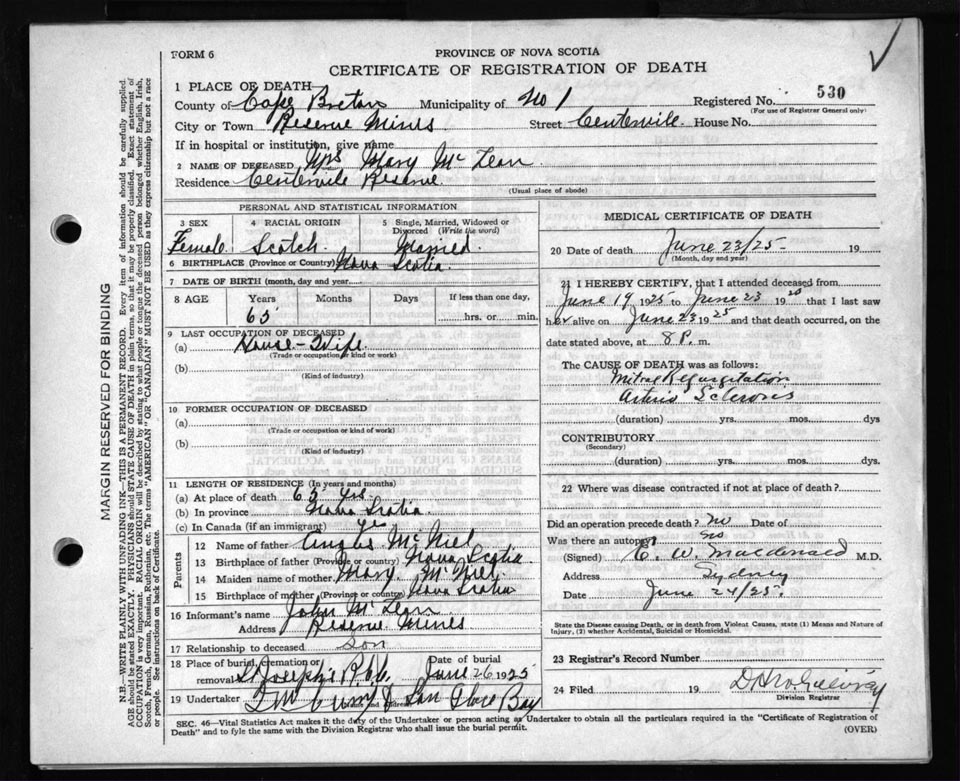 FORM 6
PROVINCE OF NOVA SCOTIA
CERTIFICATE OF REGISTRATION OF DEATH
1 PLACE OF DEATH
County of Cape Breton Municipality of No 1 Registered No. 530
(For use of Registrar General only)
City or Town Reserve Mines Street Centerville House No.
If in hospital or institution, give name
2 NAME OF DECEASED Mrs Mary McLean
Residence Centerville Reserve
(Usual place of abode)
PERSONAL AND STATISTICAL INFORMATION
3 SEX 4 RACIAL ORIGIN 5 Single, Married, Widowed or Divorced (Write the word)
Female Scotch Married
6 BIRTHPLACE (Province or Country) Nova Scotia
7 DATE OF BIRTH (month, day and year)
8 AGE Years Months Days If less than one day,
65 hrs. or min.
9 LAST OCCUPATION OF DECEASED
(a) House-Wife
(Trade or occupation or kind or work)
(b)
(Kind of industry)
10 FORMER OCCUPATION OF DECEASED
(a)
(Trade or occupation or kind of work)
(b)
(Kind of industry)
11 LENGTH OF RESIDENCE (In years and months)
(a) At place of death 65 yrs
(b) In province Nova Scotia
(c) In Canada (if an immigrant) yes
Parents
12 Name of father Angus McNiel
13 Birthplace of father (Province or country) Nova Scotia
14 Maiden name of mother Mary McNiel
15 Birthplace of mother (Province or country) Nova Scotia
16 Informant's name John McLean
Address Reserve Mines
17 Relationship to deceased Son
18 Place of burial, cremation or removal St Joseph's Date of burial June 26 1925
19 Undertaker Glace Bay
MEDICAL CERTIFICATE OF DEATH
20 Date of death June 23/25 19
(Month, day and year)
21 I HEREBY CERTIFY, that I attended deceased from
June 19 1925 to June 23 1925 that I last saw
her alive on June 23 1925 and that death occurred, on the
date stated above, at 8 P. m.
The CAUSE OF DEATH was as follows:
Mitral Regurgitation
Arterio Sclerosis
(duration) yrs. mos. dys
CONTRIBUTORY
(Secondary)
(duration) yrs. mos. dys.
22 Where was disease contracted if not at place of death?
Did an operation precede death? no Date of
Was there an autopsy? no
(Signed) C. W. Macdonald M.D.
Address Sydney
Date June 24/25.
State the Disease causing Death, or in death from Violent Causes, state (1) Means and Nature of
Injury, (2) whether Accidental, Suicidal or Homicidal.
23 Registrar's Record Number
24 Filed 19
Division Registrar
SEC. 46—Vital Statistics Act makes it the duty of the Undertaker or person acting as Undertaker to obtain all the particulars required in the "Certificate of Registration of
Death" and to fyle the same with the Division Registrar who shall issue the burial permit.
(OVER)
MARGIN RESERVED FOR BINDING
N.B.—WRITE PLAINLY WITH UNFADING INK—THIS IS A PERMANENT RECORD. Every item of information should be carefully supplied.
AGE should be stated EXACTLY. PHYSICIANS should STATE CAUSE OF DEATH in plain terms, so that it may be properly classified. Exact statement of
OCCUPATION is very important. RACIAL ORIGIN will be described by stating to what people or tongue the deceased person belonged whether English, Irish,
Scotch, French, German, Russian, Ruthenian, etc. The terms "AMERICAN" OR "CANADIAN" MUST NOT BE USED as they express citizenship but not a race
or people. See instructions on back of Certificate.